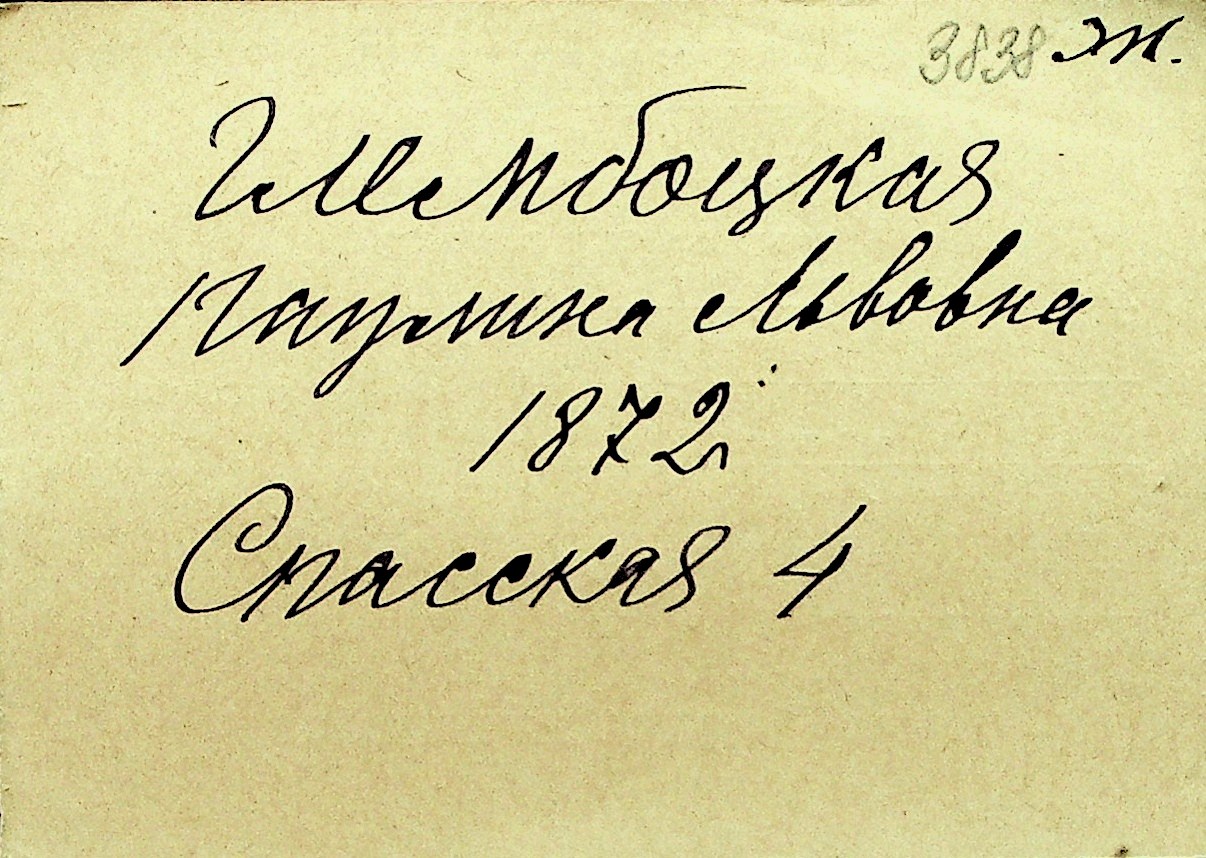 3838 ж.
Глембоцкая
Паулина Львовна
1872
Спасская 4